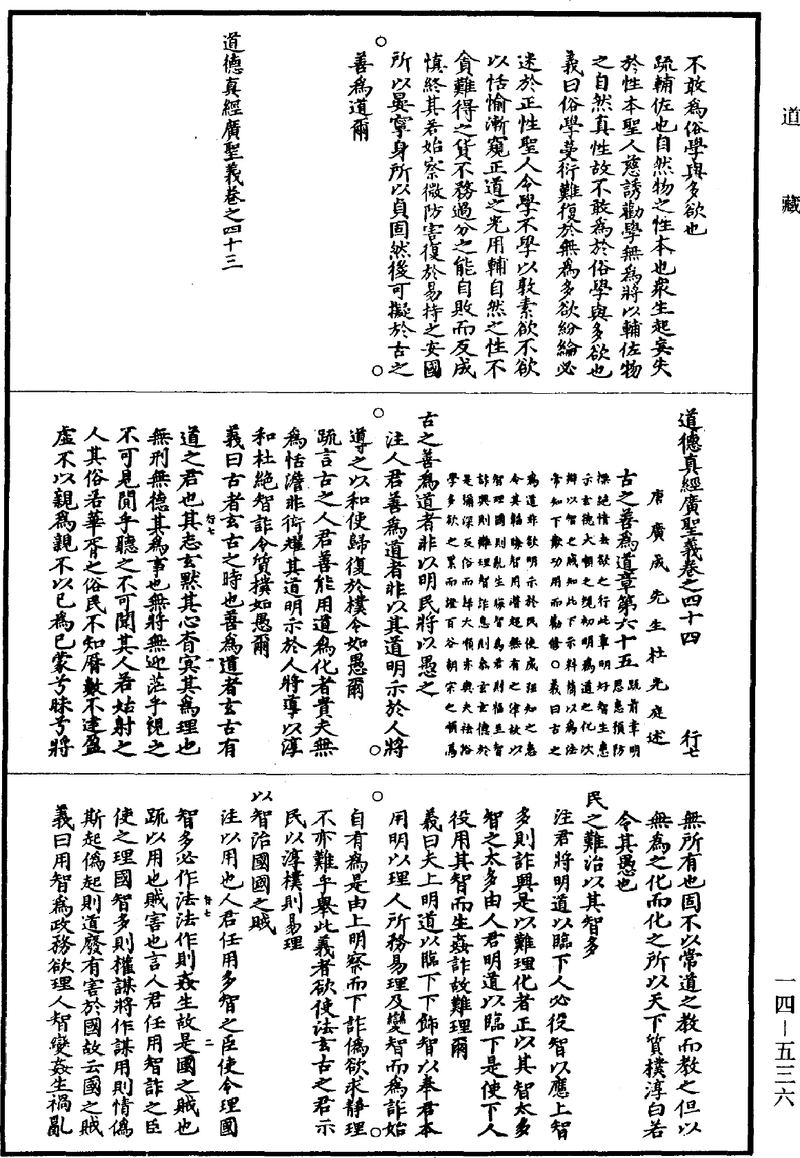 道藏
不敢為俗學與多欲也
疏輔佐也自然物之性本也衆生起妄失
於性本聖人慈誘勸學無為將以輔佐物
之自然真性故不敢為於俗學與多欲也
義曰俗學蔓衍難復於無為多欲紛綸必
迷於正性聖人令學不學以敦素欲不欲
以恬愉漸窺正道之光用輔自然之性不
貪難得之貨不務過分之能自敗而反成
慎終其若始察微防害復於易持之安國
所以晏寧身所以貞固然後可擬於古之
善為道爾
道德真經廣聖義卷之四十三
道德真經廣聖義卷之四十四 行七
唐廣成先生杜光庭述
古之善為道章第六十五
疏前章明
思患預防
深絕情去欲之行此章明好智生患
示玄德大順之規初明為道之化次
辯以智之減知此下示料簡以為法
常知下歎功用而勸修○義曰古之
為道非欲明示於民使成理知之患
令其韜晦智用潛趍無有之律故以
智理國則亂生漆智為君則福至智
詐興則難理智詐息則易玄玄德於
是彌深反俗而歸大順亦與夫袪俗
學多欲之累而證百谷朝宗之傾焉
古之善為道者非以明民將以愚之
注人君善為道者非以其道明示於人將
導之以和使歸復於樸令如愚爾
疏言古之人君善能用道為化者貴夫無
為恬澹非衒耀其道明示於人將導以淳
和杜絕智詐令質樸如愚爾
義曰古者玄古之時也善為道者玄古有
道之君也其志玄默其心杳冥其為理也
無刑無德其為事也無將無迎茫乎視之
不可見閴乎聽之不可聞其人若姑射之
人其俗若華胥之俗民不知曆數不達盈
虛不以親為親不以己為己蒙兮昧兮將
無所有也固不以常道之教而教之但以
無為之化而化之所以天下質樸淳白若
令其愚也
民之難治以其智多
注君將明道以臨下人必役智以應上智
多則詐興是以難理化者正以其智太多
智之太多由人君明道以臨下是使下人
役用其智而生姦詐故難理爾
義曰夫上明道以臨下下飾智以奉君本
用明以理人所務易理及變智而為詐始
自有為是由上明察而下詐偽欲求靜理
不亦難乎舉此義者欲使法玄古之君示
民以淳樸則易理
以智治國國之賊
注以用也人君任用多智之臣使令理國
智多必作法法作則姦生故是國之賊也
疏以用也賊害也言人君任用智詐之臣
使之理國智多則權謀將作謀用則情偽
斯起偽起則道廢有害於國故云國之賊
義曰用智為政務欲理人智變姦生禍亂
一四－五三六